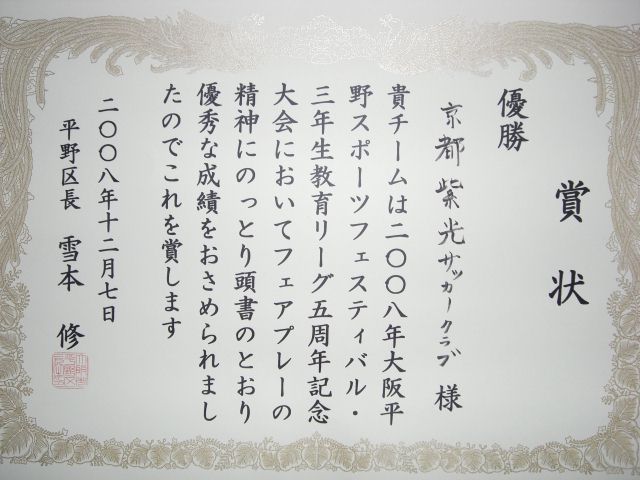 賞状
優勝
京都紫光サッカークラブ様
貴チームは二〇〇八年大阪平
野スポーツフェスティバル・
三年生教育リーグ五周年記念
大会においてフェアプレーの
精神にのっとり頭書のとおり
優秀な成績をおさめられまし
たのでこれを賞します
二〇〇八年十二月七日
平野区長 雪本 修